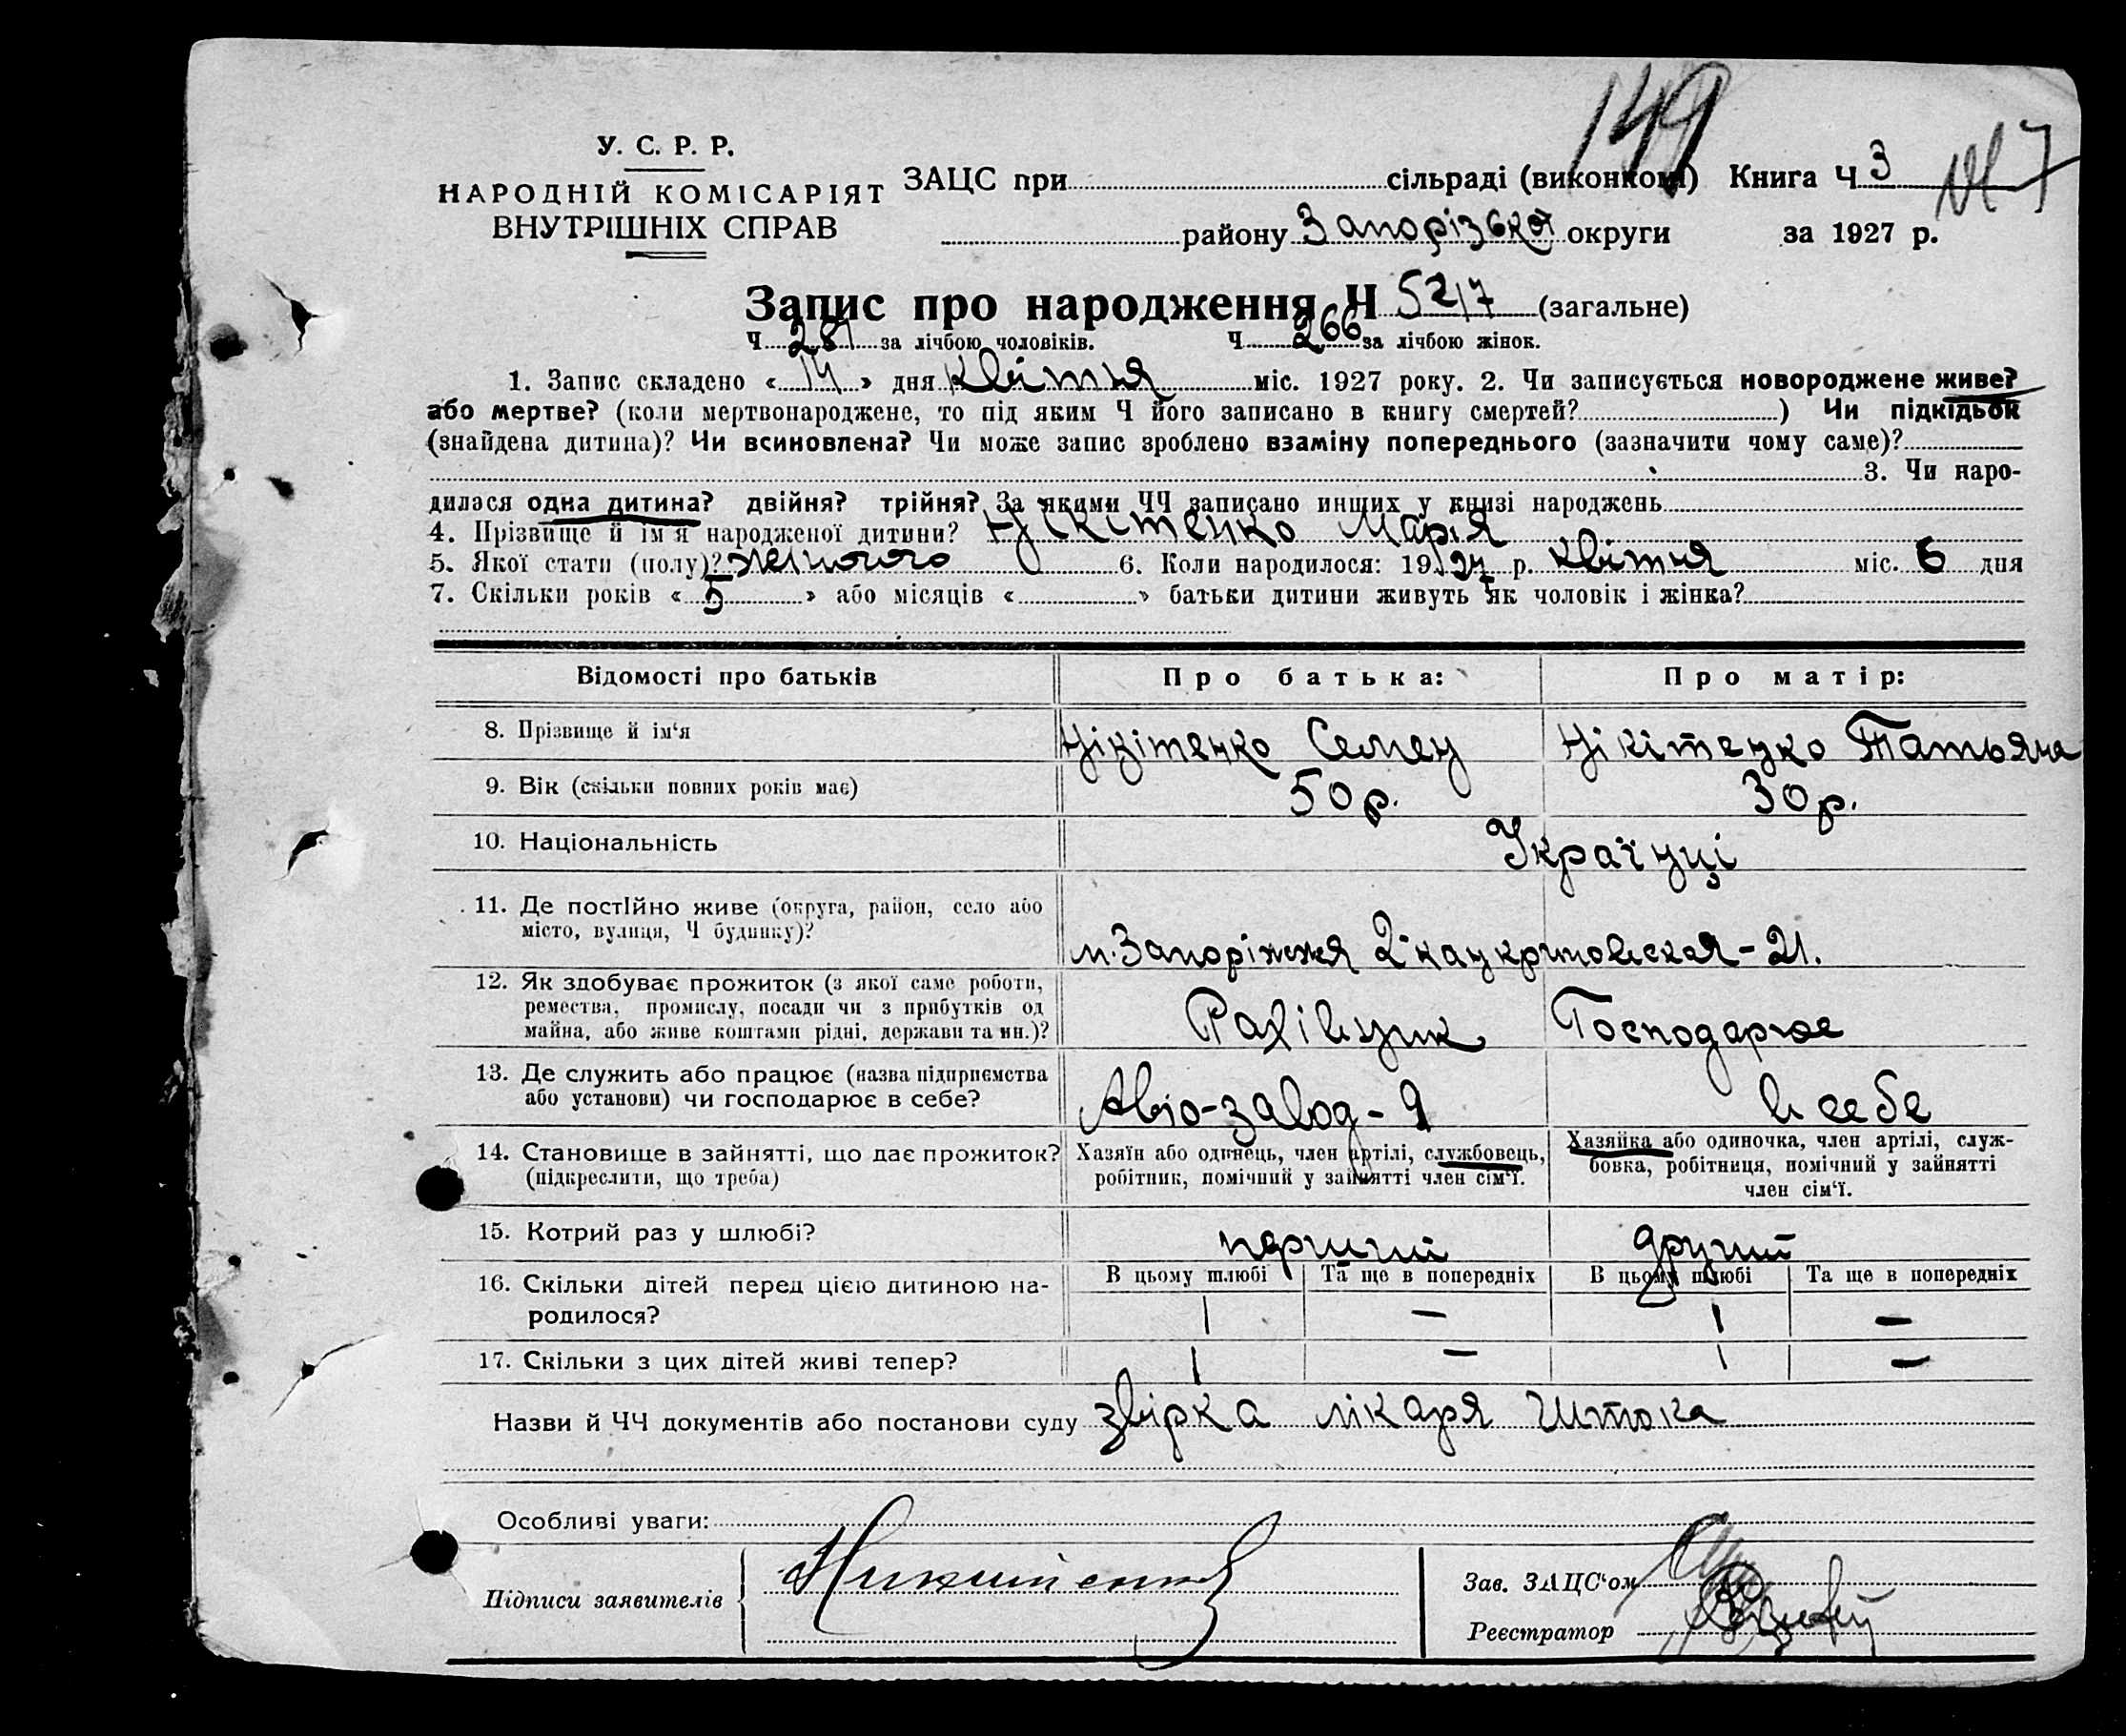 149
У. С. Р. Р.
НАРОДНІЙ КОМІСАРІЯТ
ВНУТРІШНІХ СПРАВ
ЗАЦС при сільраді (виконкомі) Книга Ч 3
району Запорізької округи за 1927 р.
Запис про народження Ч 527 (загальне)
Ч 281 за лічбою чоловіків. Ч 266 за лічбою жінок.
1. Запис складено « 14 » дня квітня міс. 1927 року. 2. Чи записується новороджене живе?
або мертве? (коли мертвонароджене, то під яким Ч його записано в книгу смертей? ) Чи підкідьок
(знайдена дитина)? Чи всиновлена? Чи може запис зроблено взаміну попереднього (зазначити чому саме)?
3. Чи наро-
дилася одна дитина? двійня? трійня? За якими ЧЧ записано инших у книзі народжень
4. Прізвище й ім'я народженої дитини? Нікітенко Марія
5. Якої стати (полу)? жіночого 6. Коли народилося: 1927 р. квітня міс. 6 дня
7. Скільки років « 5 » або місяців « » батьки дитини живуть як чоловік і жінка?
Відомості про батьків Про батька: Про матір:
8. Прізвище й ім'я Нікітенко Семен Нікітенко Татьяна
9. Вік (скільки повних років має) 50 р. 30 р.
10. Національність Українці
11. Де постійно живе (округа, район, село або
місто, вулиця, Ч будинку)? м. Запоріжжя 2 - 21.
12. Як здобуває прожиток (з якої саме роботи,
ремества, промислу, посади чи з прибутків од
майна, або живе коштами рідні, держави та ин.)? Рахівник Господарює
13. Де служить або працює (назва підприємства
або установи) чи господарює в себе? Авіо-завод-9 в себе
14. Становище в зайнятті, що дає прожиток?
(підкреслити, що треба)
Хазяїн або одинець, член артілі, службовець,
робітник, помічний у зайнятті член сім'ї.
Хазяйка або одиночка, член артілі, служ-
бовка, робітниця, помічний у зайнятті
член сім'ї.
15. Котрий раз у шлюбі? перший другий
16. Скільки дітей перед цією дитиною на-
родилося?
В цьому шлюбі Та ще в попередніх В цьому шлюбі Та ще в попередніх
1 — 1 —
17. Скільки з цих дітей живі тепер? 1 — 1 —
Назви й ЧЧ документів або постанови суду звірка лікаря
Особливі уваги:
Підписи заявителів
Зав. ЗАЦС'ом
Реєстратор